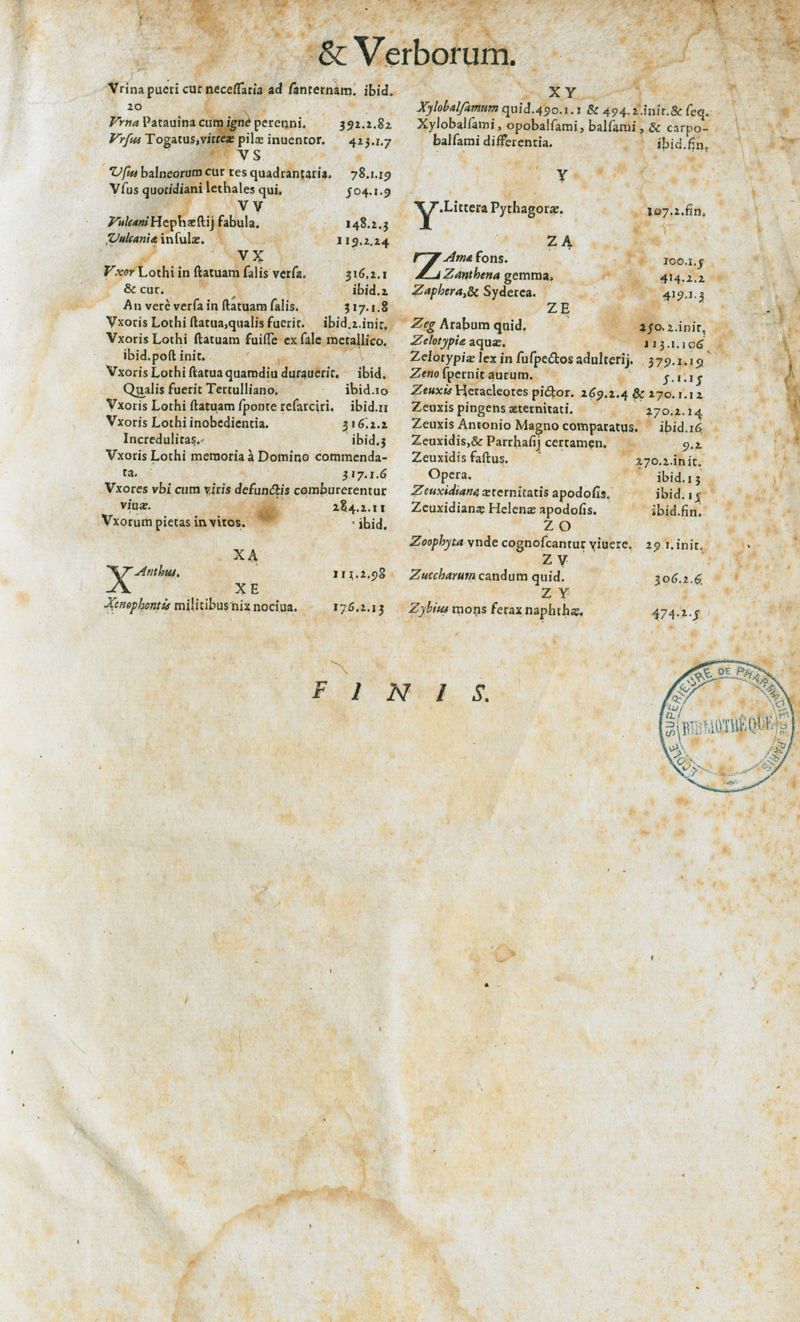 & Verborum.
Vrina pueri cur neceſſaria ad ſanternam. ibid.
20
Vrna Patauina cum igne perenni. 392.2.82
Vrſus Togatus, vitreæ pilæ inuentor. 423.1.7
V S
Vſus balneorum cur tes quadrantaria. 78.1.19
Vſus quotidiani lethales qui. 504.1.9
V V
Vulcani Hephæſtij fabula. 148.2.3
Vulcaniæ inſulæ. 119.2.24
V X
Vxor Lothi in ſtatuam ſalis verſa. 316.2.1
& cur. ibid.2
An verè verſa in ſtatuam ſalis. 317.1.8
Vxoris Lothi ſtatua, qualis fuerit. ibid.2.init.
Vxoris Lothi ſtatuam fuiſſe ex ſale metallico.
ibid.poſt init.
Vxoris Lothi ſtatua quamdiu durauerit. ibid.
Qualis fuerit Tertulliano. ibid.10
Vxoris Lothi ſtatuam ſponte reſarciri. ibid.11
Vxoris Lothi inobedientia. 316.2.2
Incredulitas. ibid.3
Vxoris Lothi memoria à Domino commenda-
ta. 317.1.6
Vxores vbi cum viris defunctis comburerentur
viuæ. 284.2.11
Vxorum pietas in viros. ibid.
X A
XAnthus. 111.2.98
X E
Xenophontis militibus nix nociua. 176.2.13
X Y
Xylobalſamum quid. 490.1.1 & 494.2.init.& ſeq.
Xylobalſami, opobalſami, balſami, & carpo-
balſami differentia. ibid.fin.
Y
Y. Littera Pythagoræ. 107.2.fin.
Z A
ZAma fons. 100.1.5
Zanthena gemma. 414.2.2
Zaphera, & Syderea. 419.1.3
Z E
Zeg Arabum quid. 250.2.init.
Zelotypiæ aquæ. 113.1.106
Zelotypiæ lex in ſuſpectos adulterij. 379.1.19
Zeno ſpernit aurum. 5.1.15
Zeuxis Heracleotes pictor. 269.2.4 & 270.1.12
Zeuxis pingens æternitati. 270.2.14
Zeuxis Antonio Magno comparatus. ibid.16
Zeuxidis, & Parrhaſij certamen. 9.2
Zeuxidis faſtus. 270.2.init.
Opera. ibid.13
Zeuxidianæ æternitatis apodoſis. ibid.15
Zeuxidianæ Helenæ apodoſis. ibid.fin.
Z O
Zoophyta vnde cognoſcantur viuere. 291.init.
Z V
Zuccharum candum quid. 306.2.6
Z Y
Zybius mons ferax naphthæ. 474.2.5
F I N I S.
ÉCOLE SUPÉRIEURE DE PHARMACIE DE PARIS
BIBLIOTHÈQUE